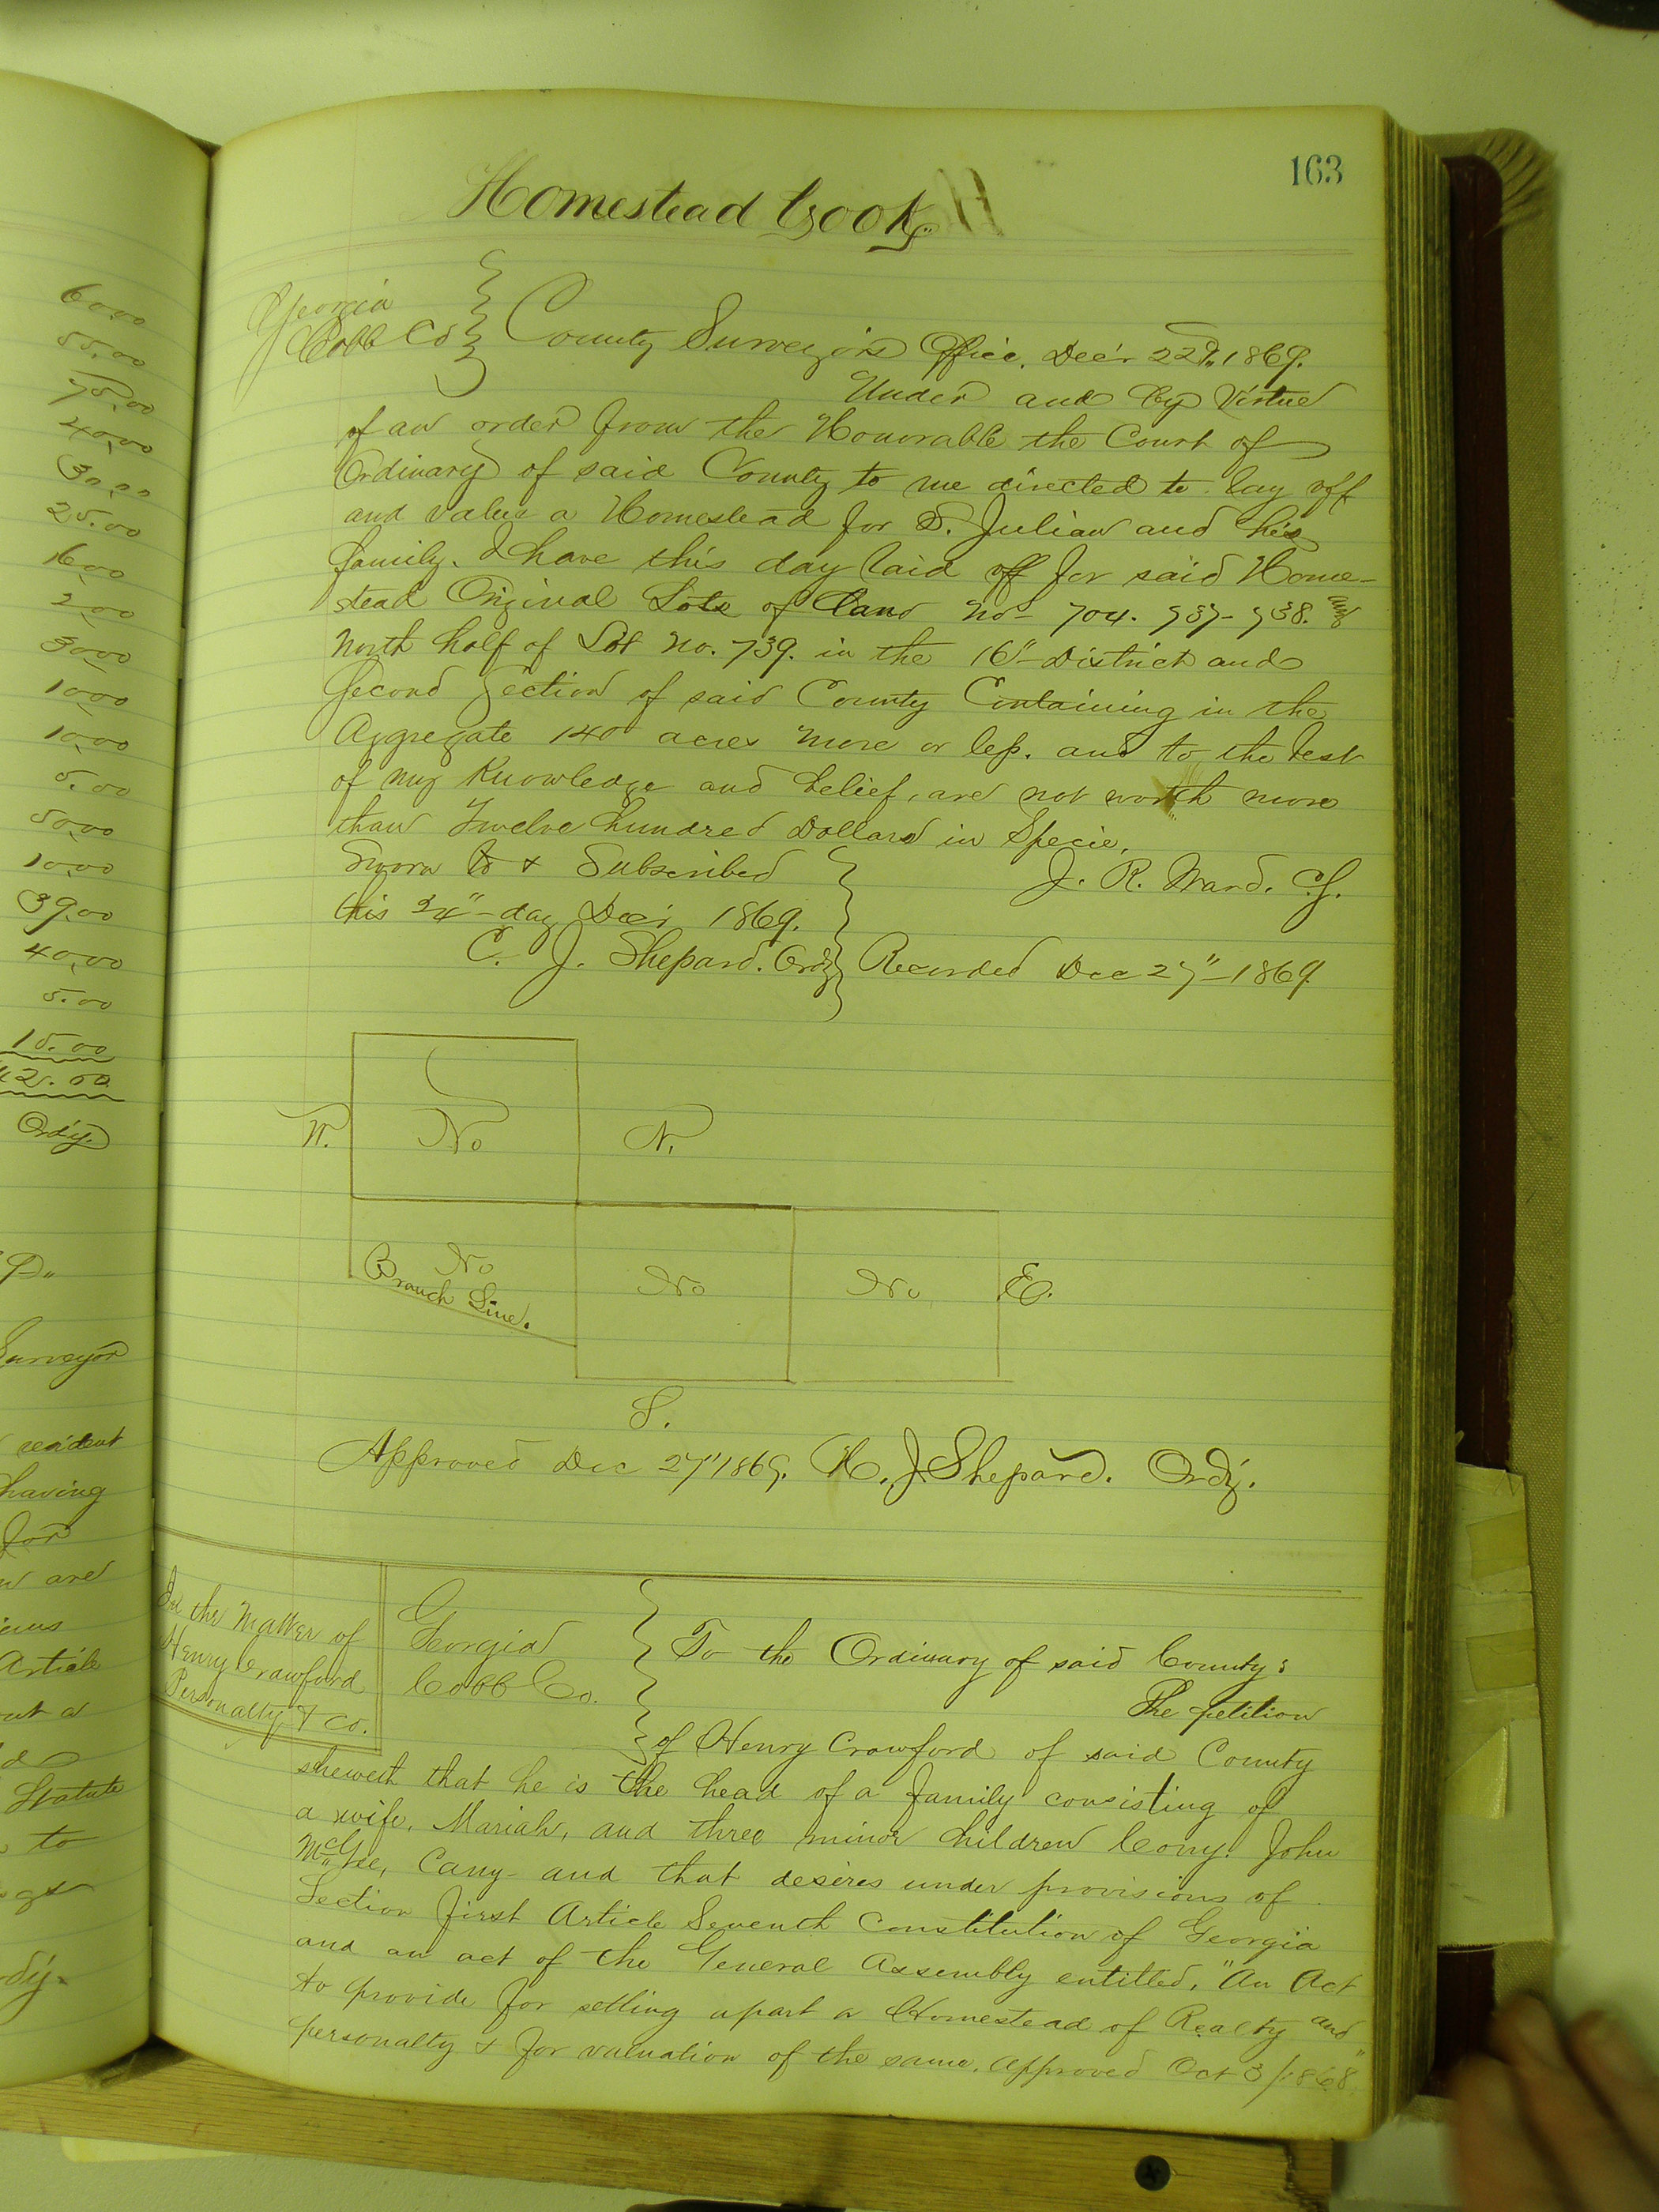 60.00
55.00
75.00
40.00
30.00
25.00
16.00
2.00
30.00
10.00
10.00
5.00
50.00
10.00
39.00
40.00
5.00
15.00
42.00
Ordy.
Surveyor
resident
having
for
are
Article
Statute
to
163
Homestead Book
Georgia
Cobb Co
County Surveyors Office. Decr 22d, 1869.
Under and by Virtue
of an order from the Honorable the Court of
Ordinary of said County to me directed to lay off
and value a Homestead for S. Julian and his
family. I have this day laid off for said Home-
stead Original Lots of land No- 704. 737- 738. and
North half of Lot No. 739. in the 16"- District and
Second Section of said County Containing in the
Aggregate 140 acres more or less. and to the best
of my Knowledge and belief, are not worth more
than Twelve hundred Dollars in Specie.
Sworn to & Subscribed
J. R. Ward. C.S.
this 24"- day Decr 1869.
C. J. Shepard. Ordy
Recorded Dec 27"- 1869
W.
No
N.
No
Branch Line.
No
No
E.
S.
Approved Dec 27" 1869. H. J. Shepard. Ordy.
In the Matter of
Henry Crawford
Personalty & Co.
Georgia
Cobb Co.
To the Ordinary of said County:
The petition
of Henry Crawford of said County
sheweth that he is the head of a family consisting of
a wife, Mariah, and three minor children Cony. John
McGee, Cany- and that desires under provisions of
Section first Article Seventh Constitution of Georgia
and an act of the General Assembly entitled, "An Act
to provide for setting apart a Homestead of Realty and
personalty & for valuation of the same. Approved Oct 3/1868"